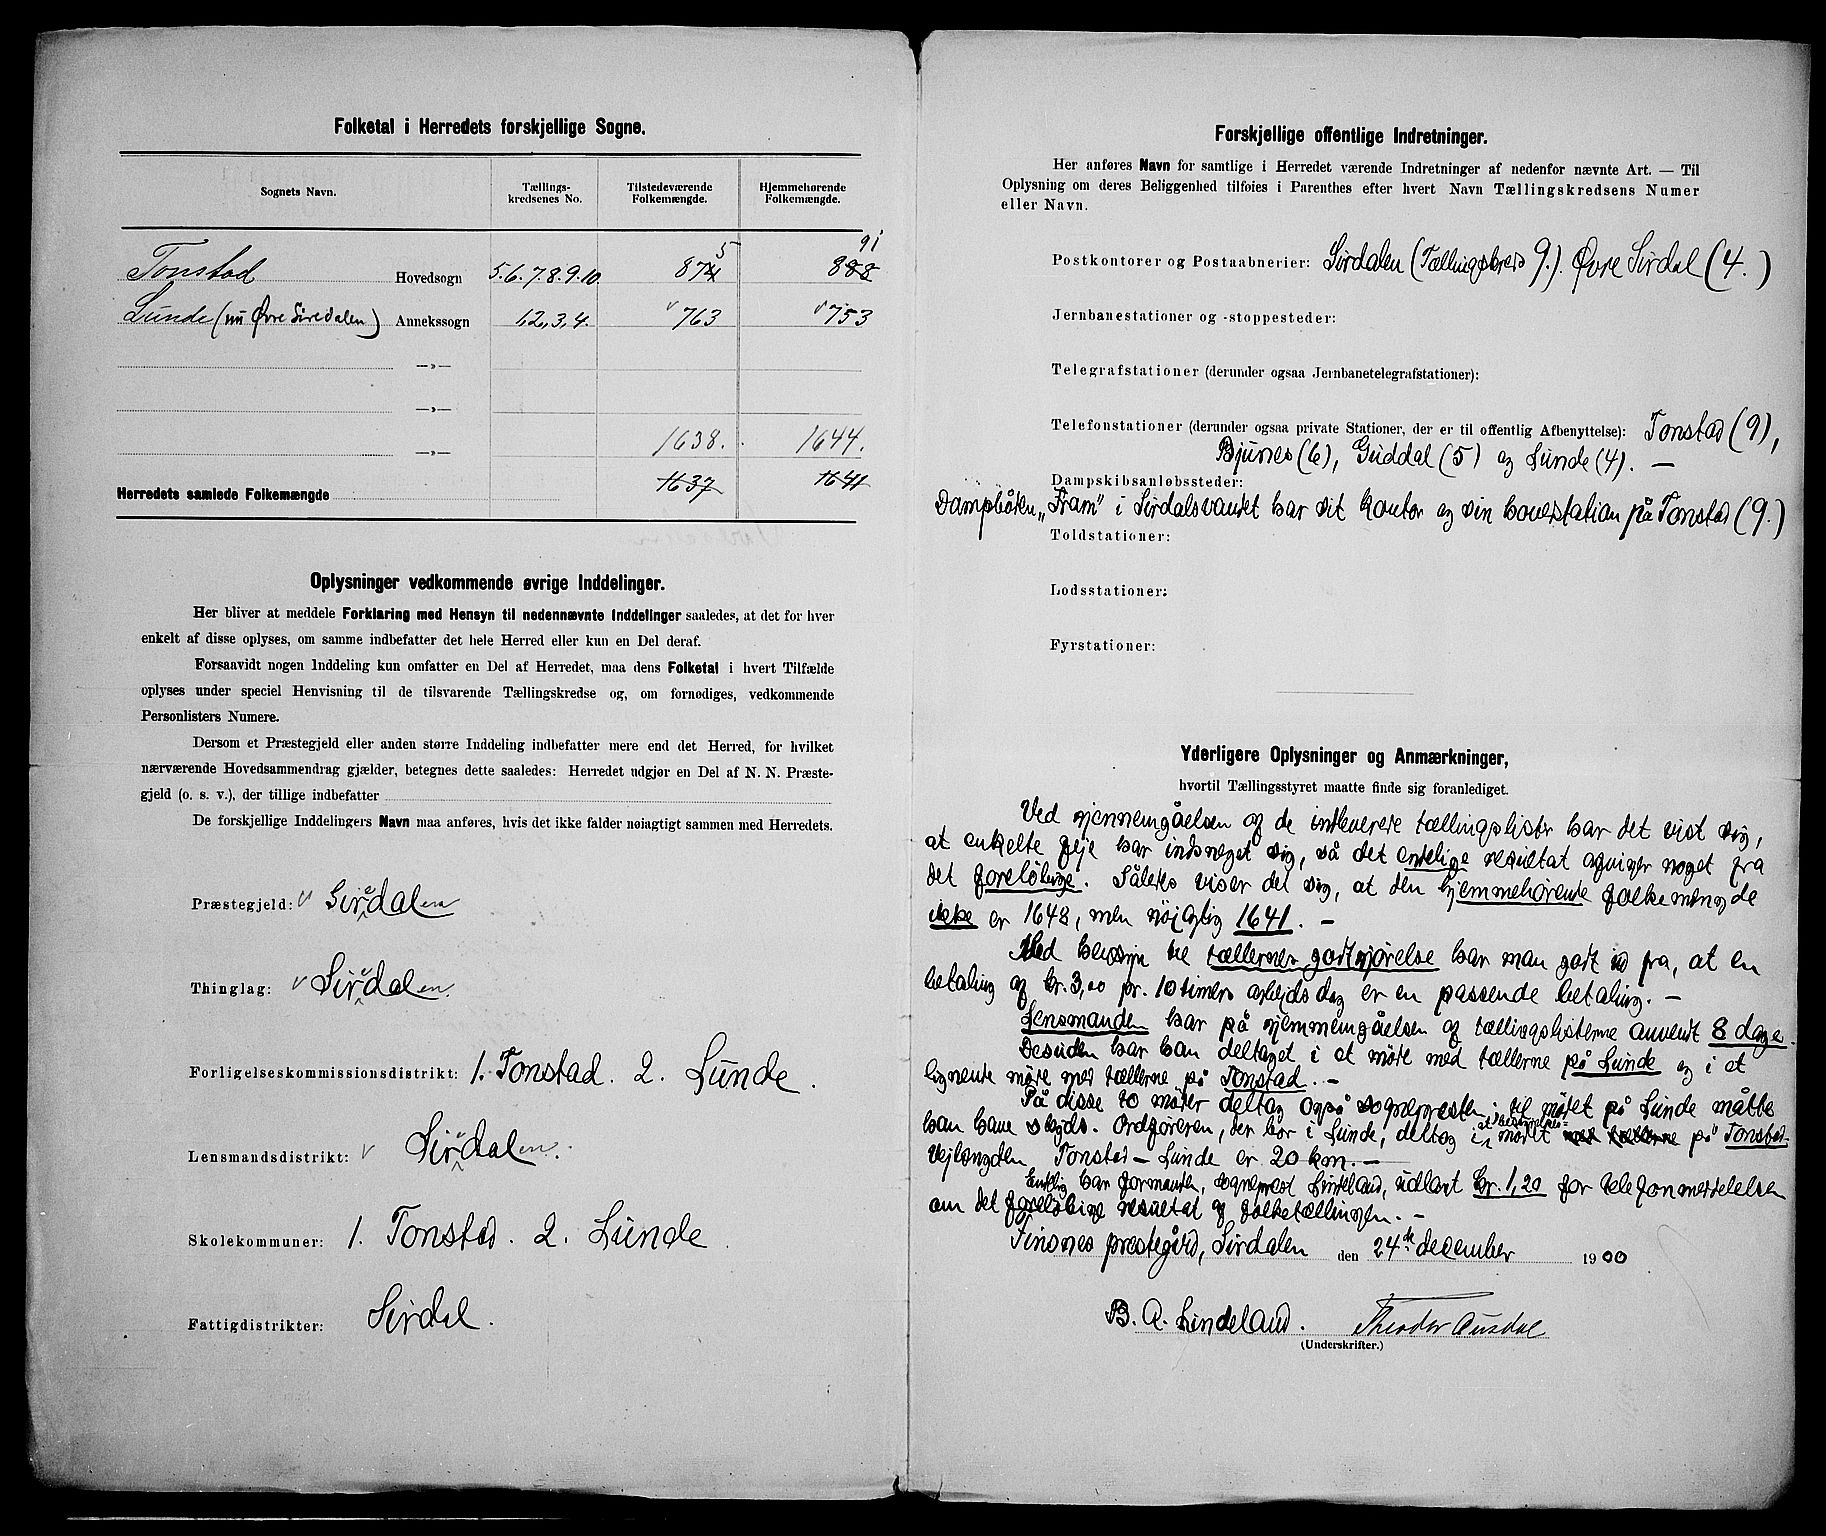 Folketal i Herredets forskjellige Sogne.
Sognets Navn. Tællings-kredsenes No. Tilstedeværende Folkemængde. Hjemmehørende Folkemængde.
5 91
Tonstad Hovedsogn 5.6.7.8.9.10. 874 888
Lunde (nu Øvre Siredalen) Annekssogn 1,2,3,4. 763 753
—»—
—»—
—»— 1638. 1644.
Herredets samlede Folkemængde 1637 1641
Oplysninger vedkommende øvrige Inddelinger.
Her bliver at meddele Forklaring med Hensyn til nedennævnte Inddelinger saaledes, at det for hver
enkelt af disse oplyses, om samme indbefatter det hele Herred eller kun en Del deraf.
Forsaavidt nogen Inddeling kun omfatter en Del af Herredet, maa dens Folketal i hvert Tilfælde
oplyses under speciel Henvisning til de tilsvarende Tællingskredse og, om fornødiges, vedkommende
Personlisters Numere.
Dersom et Præstegjeld eller anden større Inddeling indbefatter mere end det Herred, for hvilket
nærværende Hovedsammendrag gjælder, betegnes dette saaledes: Herredet udgjør en Del af N. N. Præste-
gjeld (o. s. v.), der tillige indbefatter
De forskjellige Inddelingers Navn maa anføres, hvis det ikke falder nøiagtigt sammen med Herredets.
Præstegjeld: Siredalen
Thinglag: Siredalen.
Forligelseskommissionsdistrikt: 1. Tonstad. 2. Lunde.
Lensmandsdistrikt: Siredalen.
Skolekommuner: 1. Tonstad. 2. Lunde.
Fattigdistrikter: Sirdal.
Forskjellige offentlige Indretninger.
Her anføres Navn for samtlige i Herredet værende Indretninger af nedenfor nævnte Art. — Til
Oplysning om deres Beliggenhed tilføies i Parenthes efter hvert Navn Tællingskredsens Numer
eller Navn.
Postkontorer og Postaabnerier: Sirdalen (Tællingskreds 9.). Øvre Sirdal (4.)
Jernbanestationer og -stoppesteder:
Telegrafstationer (derunder ogsaa Jernbanetelegrafstationer):
Telefonstationer (derunder ogsaa private Stationer, der er til offentlig Afbenyttelse): Tonstad (9),
Bjunes (6), Guddal (5) og Lunde (4). —
Dampskibsanløbssteder:
Dampbåten „Fram" i Sirdalsvandet har sit kontor og sin hovedstation på Tonstad (9.)
Toldstationer:
Lodsstationer:
Fyrstationer:
Yderligere Oplysninger og Anmærkninger,
hvortil Tællingsstyret maatte finde sig foranlediget.
Ved gjennemgåelsen af de indleverede tællingslister har det vist sig,
at enkelte feje har indsneget sig, så det endelige resultat afviger noget fra
det foreløbige. Således viser det sig, at den hjemmehørende folkemengde
ikke er 1648, men nøjagtig 1641. —
Med hensyn til tællernes godtgjørelse har man gåt ud fra, at en
betaling af kr. 3,00 pr. 10 timers arbejdsdag er en passende betaling. —
Lensmanden har på gjennemgåelsen af tællingslisterne anvendt 8 dage.
Desuden har han deltaget i et møte med tællerne på Lunde og i et
lignende møte med tællerne på Tonstad. —
På disse to møter deltog også sognepresten; til mødet på Lunde måtte
han have skyds. Ordføreren, der bor i Lunde, deltog i et bestyrelses=mødet med tællerne på Tonstad.
Vejlængden Tonstad — Lunde er 20 km. —
Endelig har formanden, sogneprest Lindeland, udlagt kr. 1,20 for telefonmeddelelsen
om det foreløbige resultat af folketællingen. —
Tinsnes prestegård, Sirdalen den 24de december 1900
B. A. Lindeland. Theodor Ousdal
(Underskrifter.)